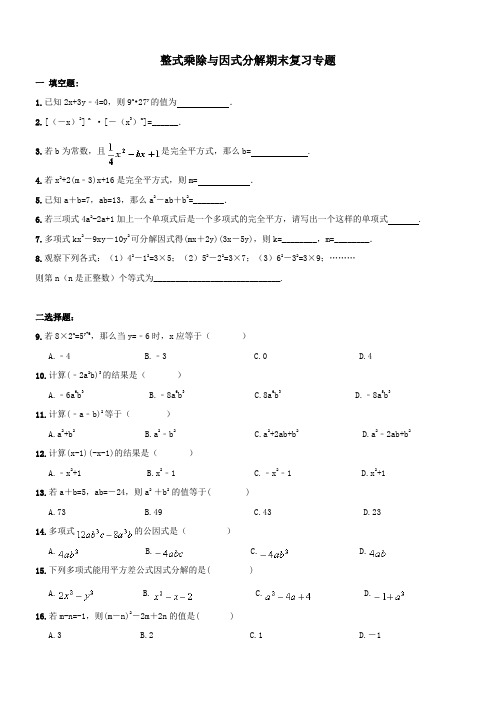 整式乘除与因式分解期末复习专题
一 填空题:
1.已知2x+3y﹣4=0，则9ˣ•27ʸ的值为 .
2.[（－x）²] ⁿ ·[－（x³）ⁿ]=______.
3.若b为常数，且\frac{1}{4}x²-bx+1是完全平方式，那么b= .
4.若x²+2(m﹣3)x+16是完全平方式，则m= .
5.已知a＋b=7，ab=13，那么a²－ab＋b²=_______.
6.若三项式4a²-2a+1加上一个单项式后是一个多项式的完全平方，请写出一个这样的单项式 .
7.多项式kx²－9xy－10y²可分解因式得(mx＋2y)(3x－5y)，则k=________，m=________.
8.观察下列各式：（1）4²－1²=3×5；（2）5²－2²=3×7；（3）6²－3²=3×9；………
则第n（n是正整数）个等式为_____________________________.
二选择题:
10.计算(﹣2a²b)³的结果是（ ）
A.﹣6a⁶b³ B.﹣8a⁶b³ C.8a⁶b³ D.﹣8a⁵b³
11.计算(﹣a﹣b)²等于（ ）
A.a²+b² B.a²﹣b² C.a²+2ab+b² D.a²﹣2ab+b²
12.计算(x-1)(-x-1)的结果是（ ）
A.﹣x²+1 B.x²﹣1 C.﹣x²﹣1 D.x²+1
13.若a＋b=5，ab=－24，则a² ＋b²的值等于( )
A.73 B.49 C.43 D.23
14.多项式12ab³c-8a³b的公因式是（ ）
A.4ab³ B.-4abc C.-4ab³ D.4ab
15.下列多项式能用平方差公式因式分解的是( )
16.若m-n=-1，则(m－n)²－2m＋2n的值是( )
A.3 B.2 C.1 D.－1